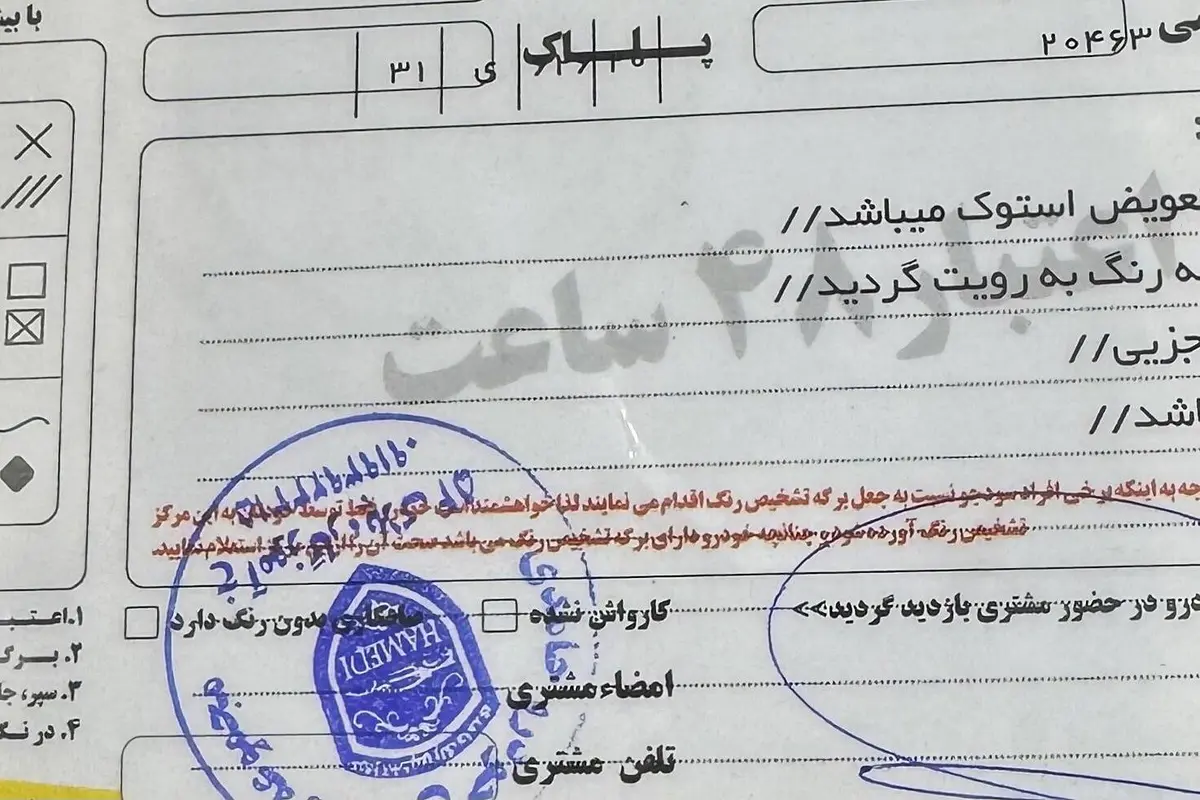 با
۲۰۴۶۳
پلاک
ی
۳۱
اعتبار ۴۸ ساعت
تعویض استوک میباشد//
رنگ به رویت گردید//
جزیی//
باشد//
به اینکه برخی افراد سودجو نسبت به جعل برگه تشخیص رنگ اقدام می نمایند لذا خواهشمند است به این مرکز
تشخیص رنگ آورده شود، چنانچه خودرو دارای برگه تشخیص رنگ می باشد صحت آن را از این مرکز استعلام نمایید.
در حضور مشتری بازدید گردید>>
کارواش نشده
صافکاری بدون رنگ دارد
امضاء مشتری
تلفن مشتری
HAMEDI
۱.اعتب
۲.برگ
۳.سپر، جا
۴.در نگ